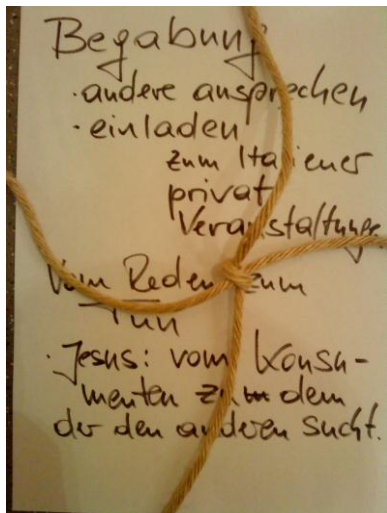 Begabung
· andere ansprechen
· einladen
zum Italiener
privat
Veranstaltunge
Vom Reden zum
Tun
· Jesus: vom Konsu-
menten zu dem
der den anderen sucht.